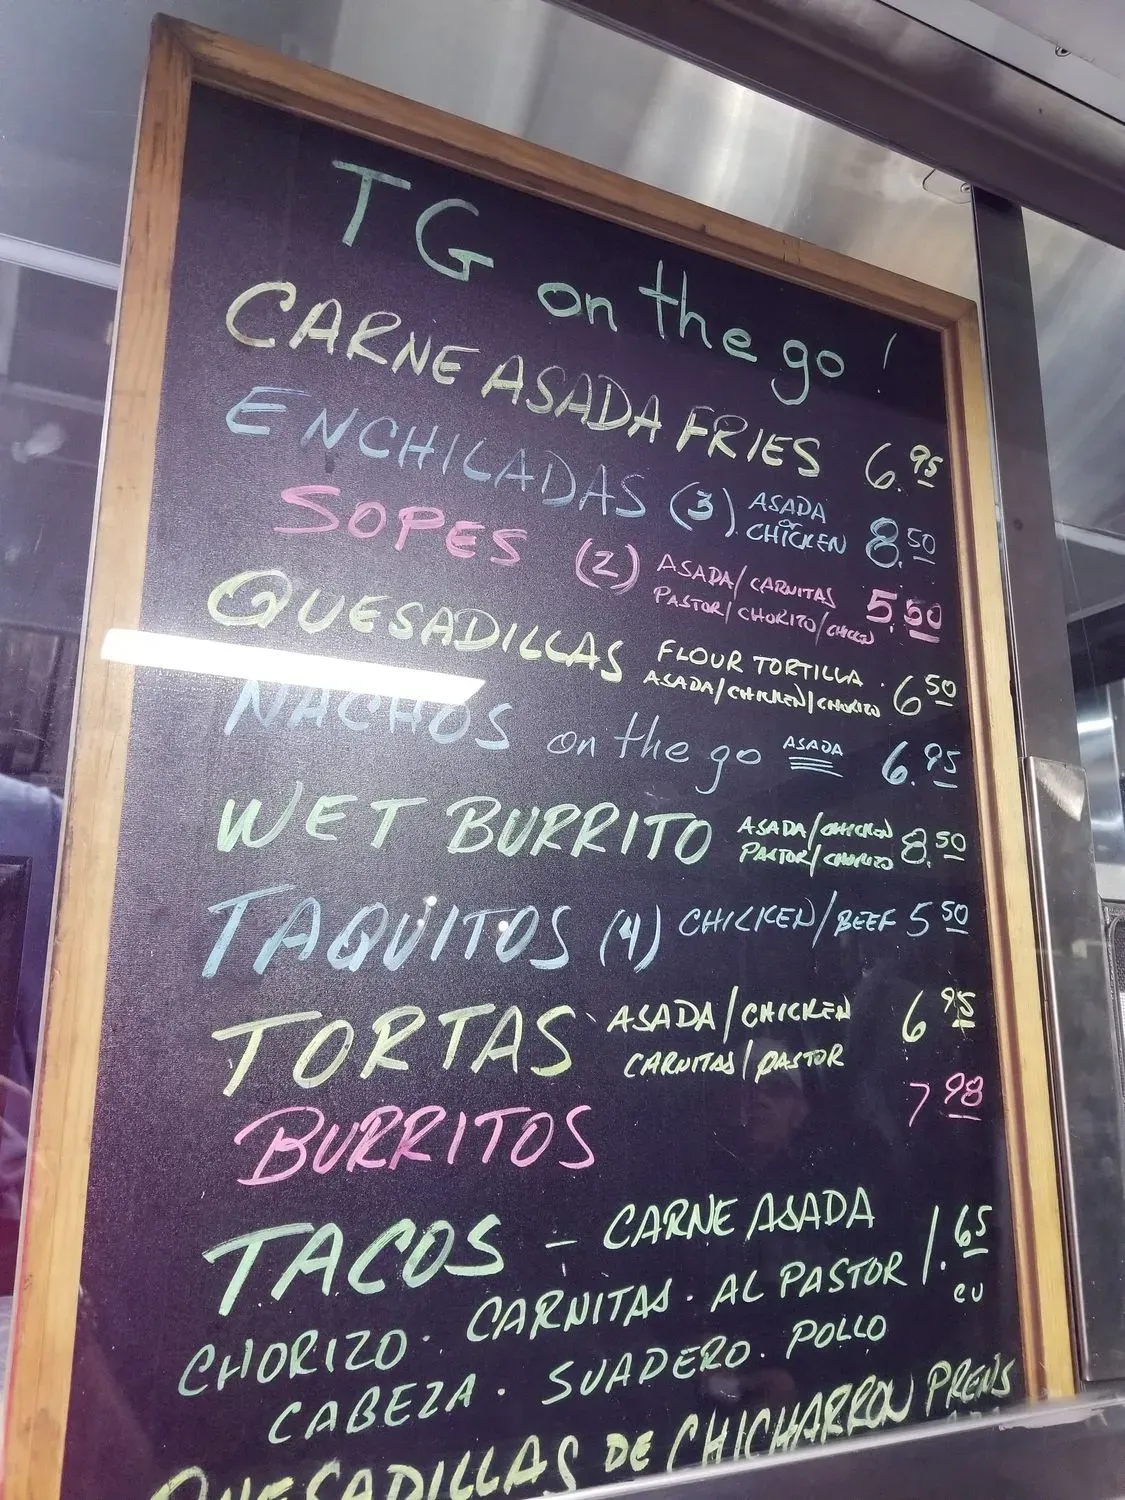 TG on the go!
CARNE ASADA FRIES 6.95
ENCHILADAS (3). ASADA or CHICKEN 8.50
SOPES (2) ASADA/CARNITAS PASTOR/CHORIZO/CHICKEN 5.50
QUESADILLAS FLOUR TORTILLA. ASADA/CHICKEN/CHORIZO 6 50
NACHOS on the go ASADA 6.95
WET BURRITO ASADA/CHICKEN PASTOR/CHORIZO 8.50
TAQUITOS (4) CHICKEN/BEEF 5 50
TORTAS ASADA/CHICKEN CARNITAS/PASTOR 6 95
BURRITOS 7 98
TACOS - CARNE ASADA
CHORIZO. CARNITAS. AL PASTOR 1.65 cu
CABEZA. SUADERO. POLLO
QUESADILLAS DE CHICHARRON PRENS